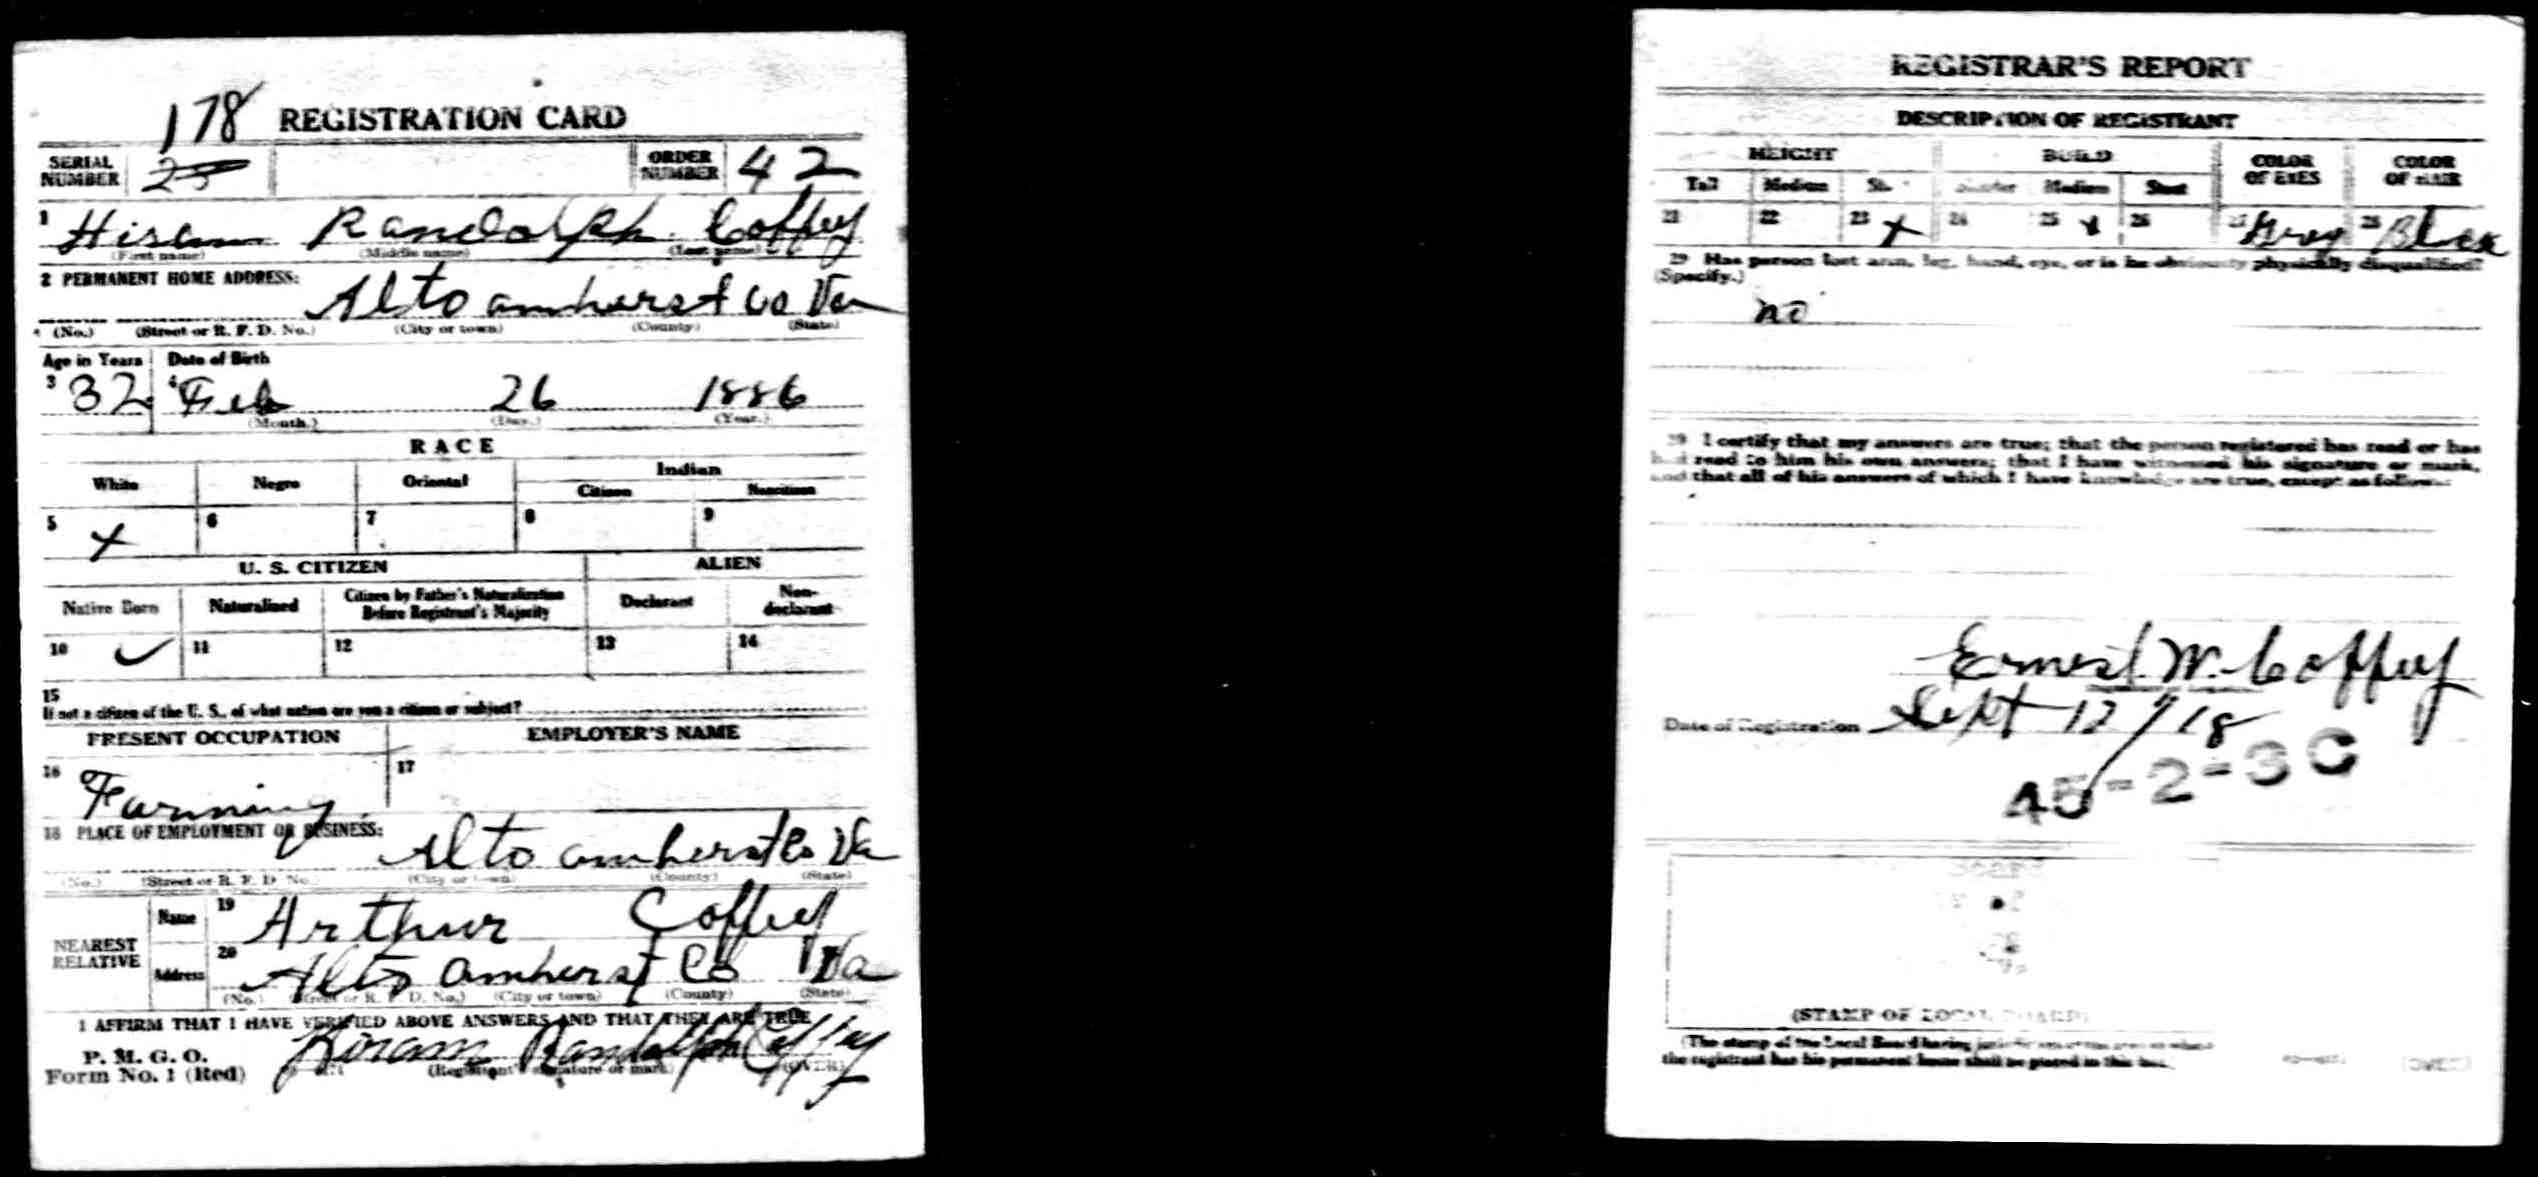 178 REGISTRATION CARD
SERIAL NUMBER 25 ORDER NUMBER 42
1 Hiram Randolph Coffey
(First name) (Middle name) (Last name)
2 PERMANENT HOME ADDRESS:
Alto amherst Co Va
(No.) (Street or R. F. D. No.) (City or town) (County) (State)
Age in Years Date of Birth
3 32 4 Feb 26 1886
(Month.) (Day.) (Year.)
RACE
White Negro Oriental Indian
Citizen Noncitizen
5 x 6 7 8 9
U. S. CITIZEN ALIEN
Native Born Naturalized Citizen by Father's Naturalization Before Registrant's Majority Declarant Non-declarant
10 ✓ 11 12 13 14
15
If not a citizen of the U. S., of what nation are you a citizen or subject?
PRESENT OCCUPATION EMPLOYER'S NAME
16 Farming 17
18 PLACE OF EMPLOYMENT OR BUSINESS:
Alto amherst Co Va
(No.) (Street or R. F. D. No.) (City or town) (County) (State)
NEAREST RELATIVE
Name 19 Arthur Coffey
Address 20 Alto amherst Co Va
(No.) (Street or R. F. D. No.) (City or town) (County) (State)
I AFFIRM THAT I HAVE VERIFIED ABOVE ANSWERS AND THAT THEY ARE TRUE
P. M. G. O.
Form No. 1 (Red) Hiram Randolph Coffey
(Registrant's signature or mark) (OVER)
REGISTRAR'S REPORT
DESCRIPTION OF REGISTRANT
HEIGHT BUILD COLOR OF EYES COLOR OF HAIR
Tall Medium Sh Slender Medium Stout
21 22 23 x 24 25 x 26 27 Gray 28 Black
29 Has person lost arm, leg, hand, eye, or is he obviously physically disqualified?
(Specify.)
no
30 I certify that my answers are true; that the person registered has read or has
had read to him his own answers; that I have witnessed his signature or mark,
and that all of his answers of which I have knowledge are true, except as follows:
Ernest W. Coffey
Date of Registration Sept 12/18
45-2-3 C
(STAMP OF LOCAL BOARD)
(The stamp of the Local Board having jurisdiction of the area in which
the registrant has his permanent home shall be placed in this box.)
(OVER)